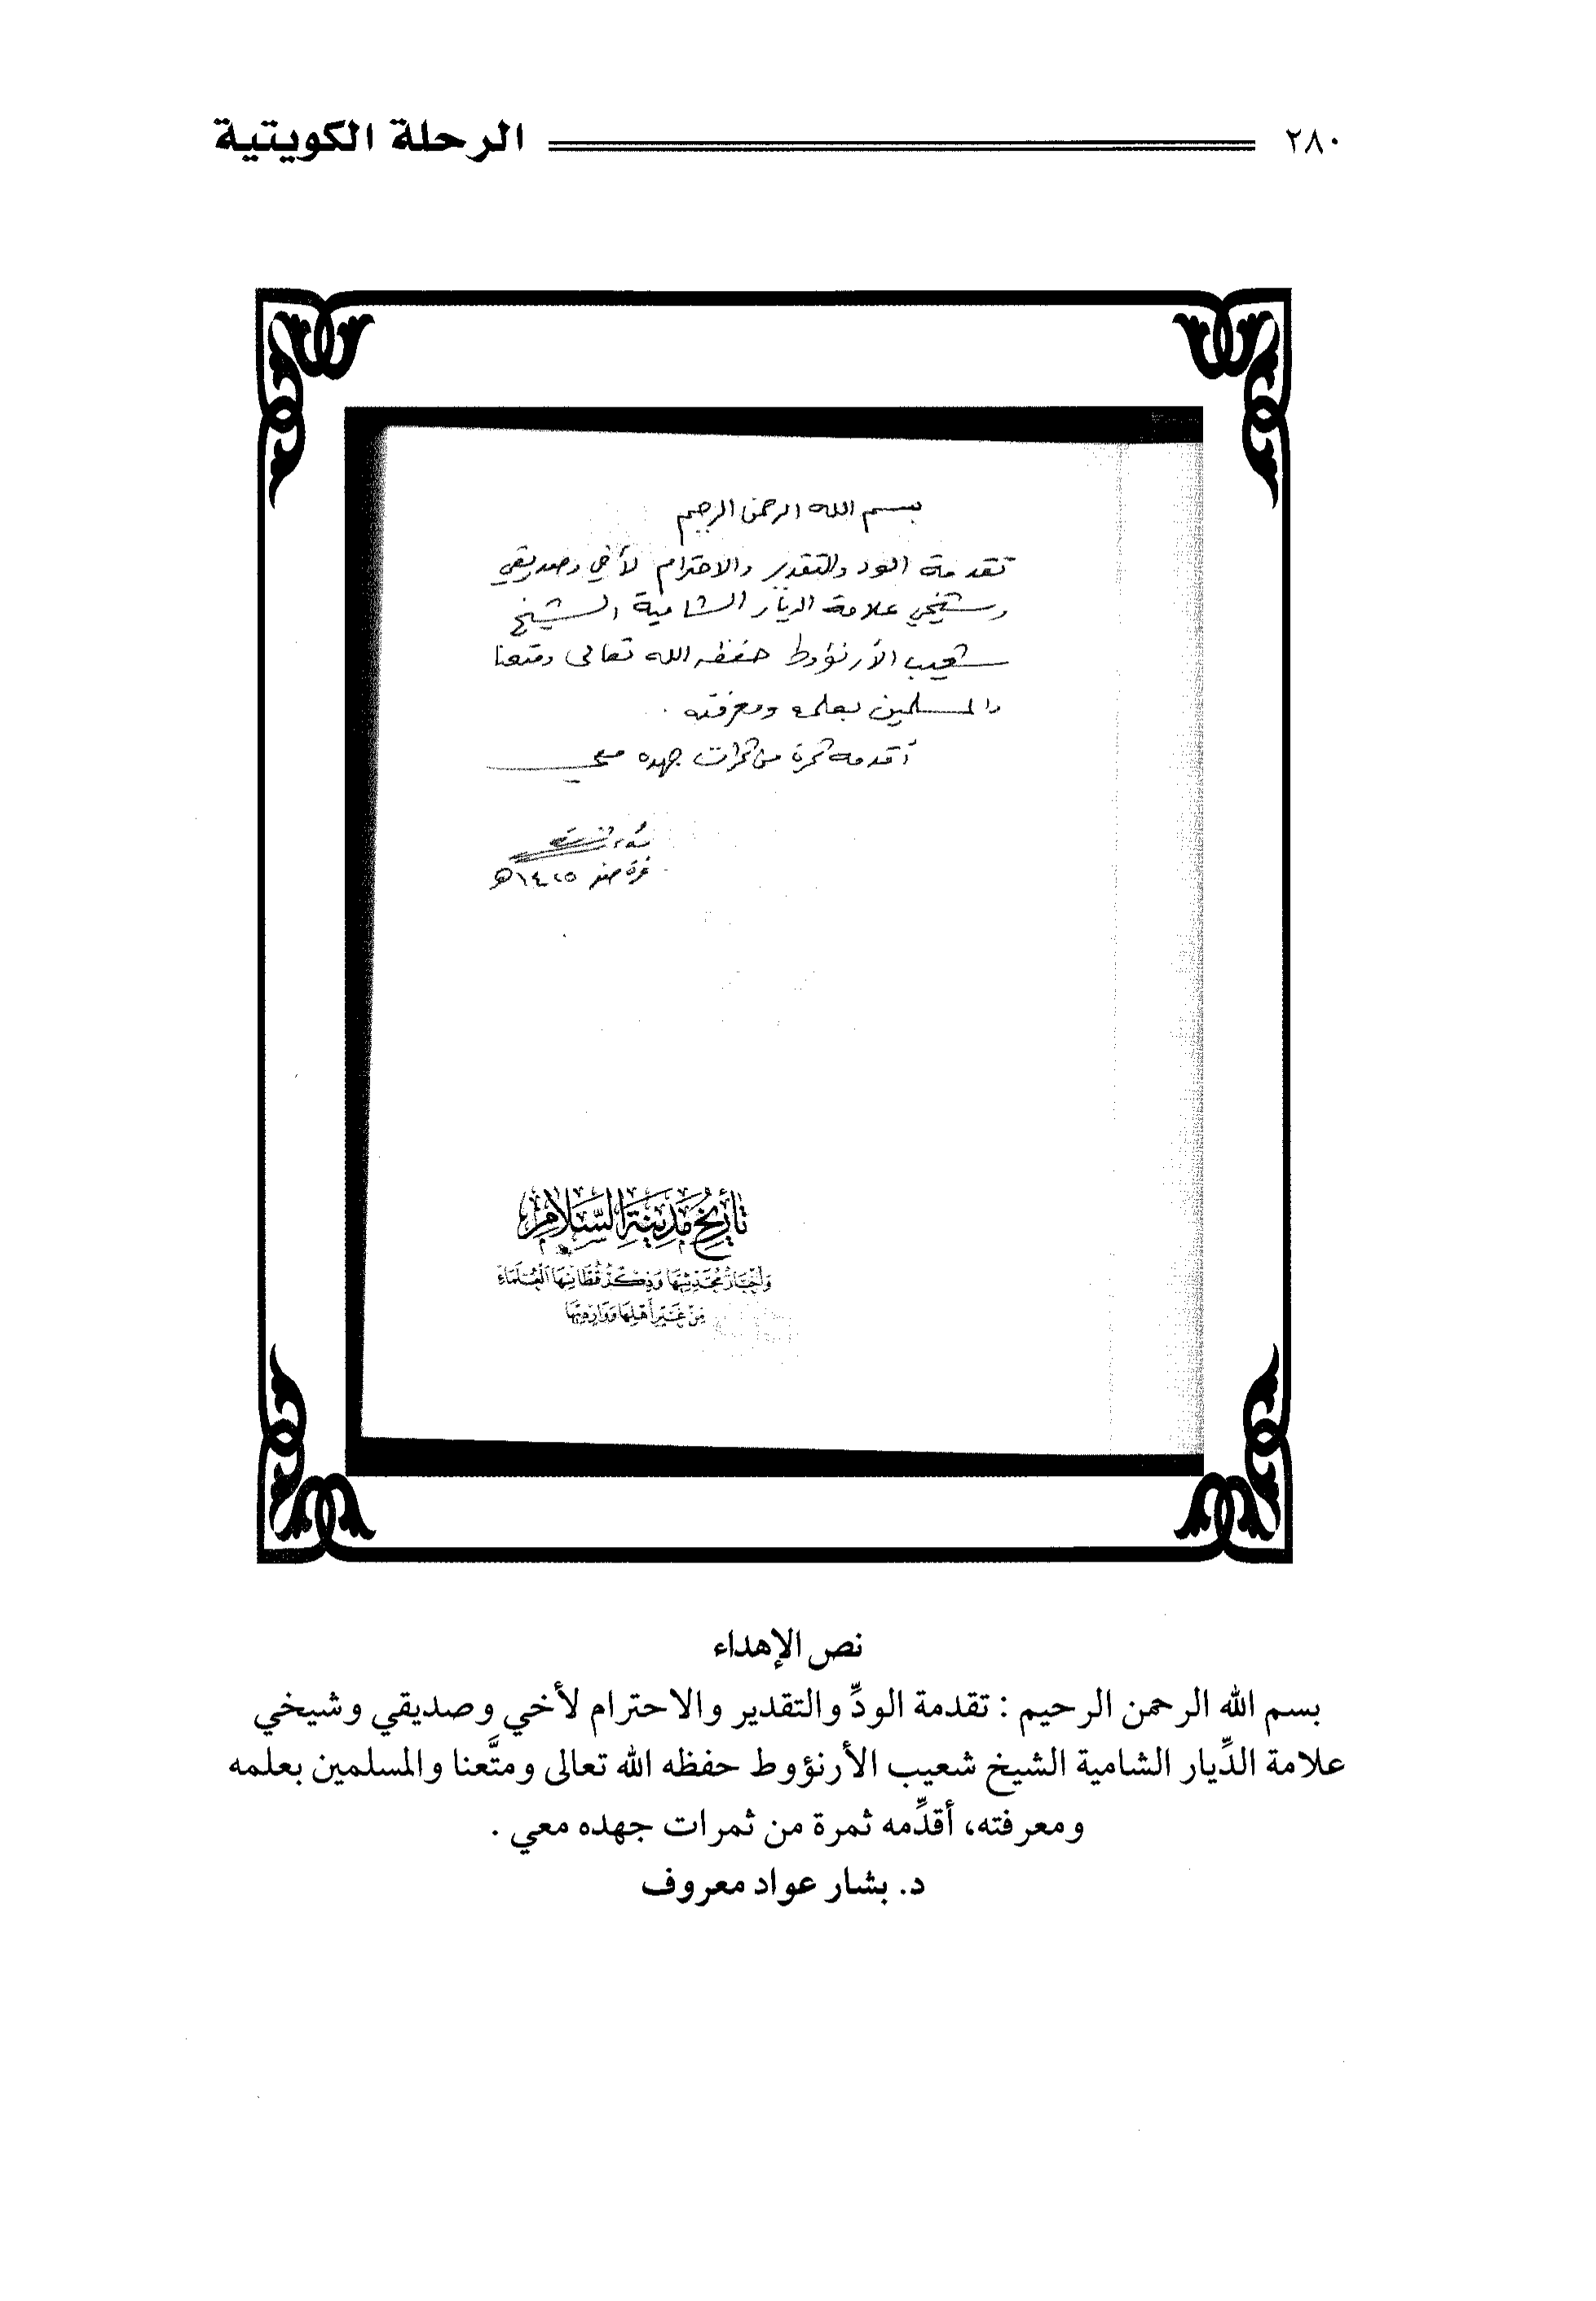 ٢٨٠ الرحلة الكويتية
بسم الله الرحمن الرحيم
تقدمة الود والتقدير والاحترام لأخي وصديقي
وشيخي علامة الديار الشامية الشيخ
شعيب الأرنؤوط حفظه الله تعالى ومتعنا
والمسلمين بعلمه ومعرفته .
أقدمه ثمرة من ثمرات جهده معي
غرة صفر ١٤٢٥هـ
تَأْرِيخُ مَدِينَةِ السَّلَامِ
وَأَخْبَارُ مُحَدِّثِيهَا وَذِكْرُ قُطَّانِهَا الْعُلَمَاءِ
مِنْ غَيْرِ أَهْلِهَا وَوَارِدِيهَا
نص الإهداء
بسم الله الرحمن الرحيم : تقدمة الودِّ والتقدير والاحترام لأخي وصديقي وشيخي
علامة الدِّيار الشامية الشيخ شعيب الأرنؤوط حفظه الله تعالى ومتَّعنا والمسلمين بعلمه
ومعرفته، أقدِّمه ثمرة من ثمرات جهده معي .
د. بشار عواد معروف